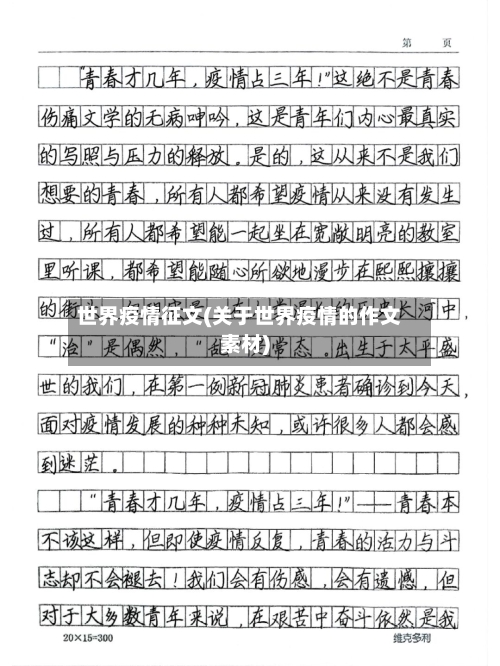 第 页
“青春才几年，疫情占三年！”这绝不是青春
伤痛文学的无病呻吟，这是青年们内心最真实
的写照与压力的释放。是的，这从来不是我们
想要的青春，所有人都希望疫情从来没有发生
过，所有人都希望能一起坐在宽敞明亮的教室
里听课，都希望能随心所欲地漫步在熙熙攘攘
的街 长河中，
世界疫情征文(关于世界疫情的作文
素材)
“治”是偶然，“乱 常态。出生于太平盛
世的我们，在第一例新冠肺炎患者确诊到今天，
面对疫情发展的种种未知，或许很多人都会感
到迷茫。
“青春才几年，疫情占三年！”——青春本
不该这样，但即使疫情反复，青春的活力与斗
志却不会褪去！我们会有伤感，会有遗憾，但
对于大多数青年来说，在艰苦中奋斗依然是我
20×15=300 维克多利